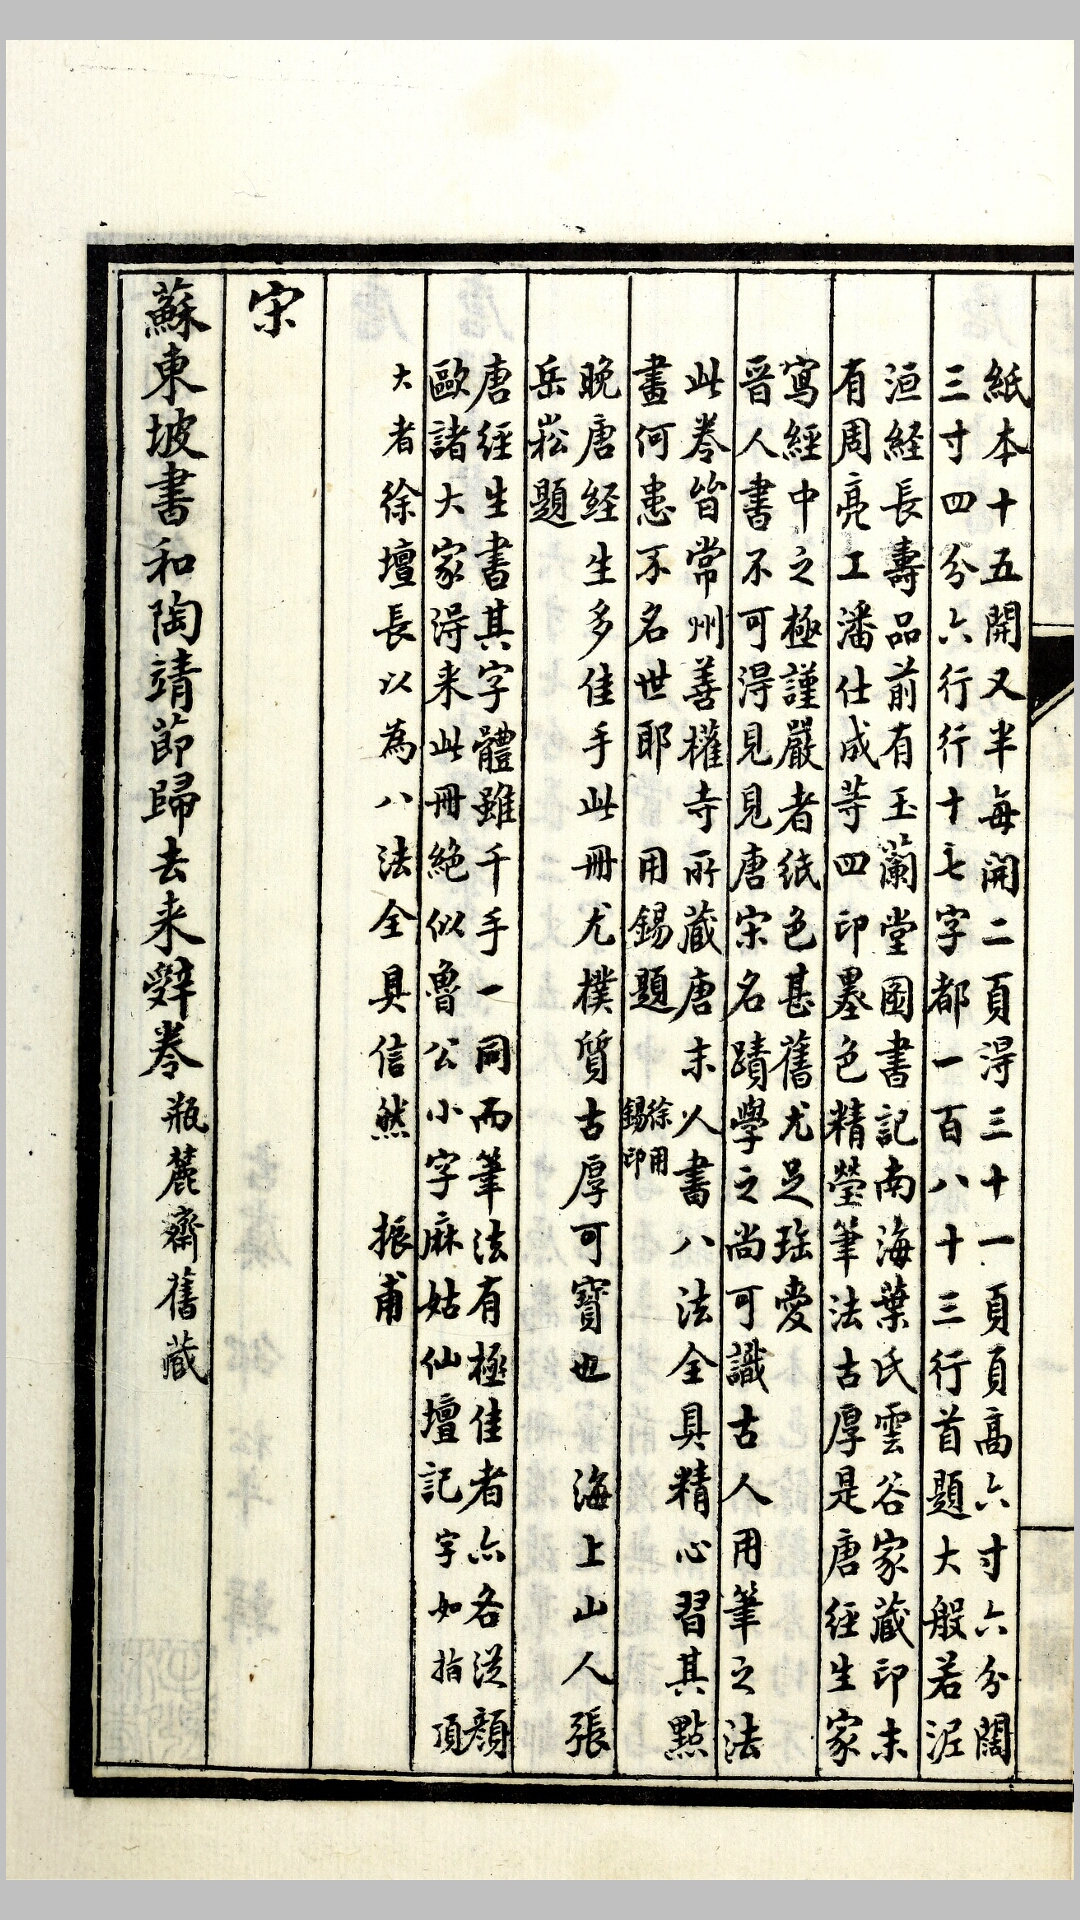 紙本十五開又半每開二頁得三十一頁頁高六寸六分闊
三寸四分六行行十七字都一百八十三行首題大般若涅
洹経長壽品前有玉蘭堂圖書記南海葉氏雲谷家藏印末
有周亮工潘仕成等四印墨色精瑩筆法古厚是唐經生家
寫經中之極謹嚴者紙色甚舊尤足珤愛
晉人書不可得見見唐宋名蹟學之尚可識古人用筆之法
此卷皆常州善權寺所藏唐末人書八法全具精心習其點
畫何患不名世耶　用錫題　徐用錫印
晚唐经生多佳手此冊尤樸質古厚可寶也　海上山人張
岳崧題
唐經生書其字體雖千手一同而筆法有極佳者亦各從顏
歐諸大家得来此冊絕似魯公小字麻姑仙壇記字如指頂
大者徐壇長以為八法全具信然　振甫
宋
蘇東坡書和陶靖節歸去来辭卷　瓶麓齋舊藏